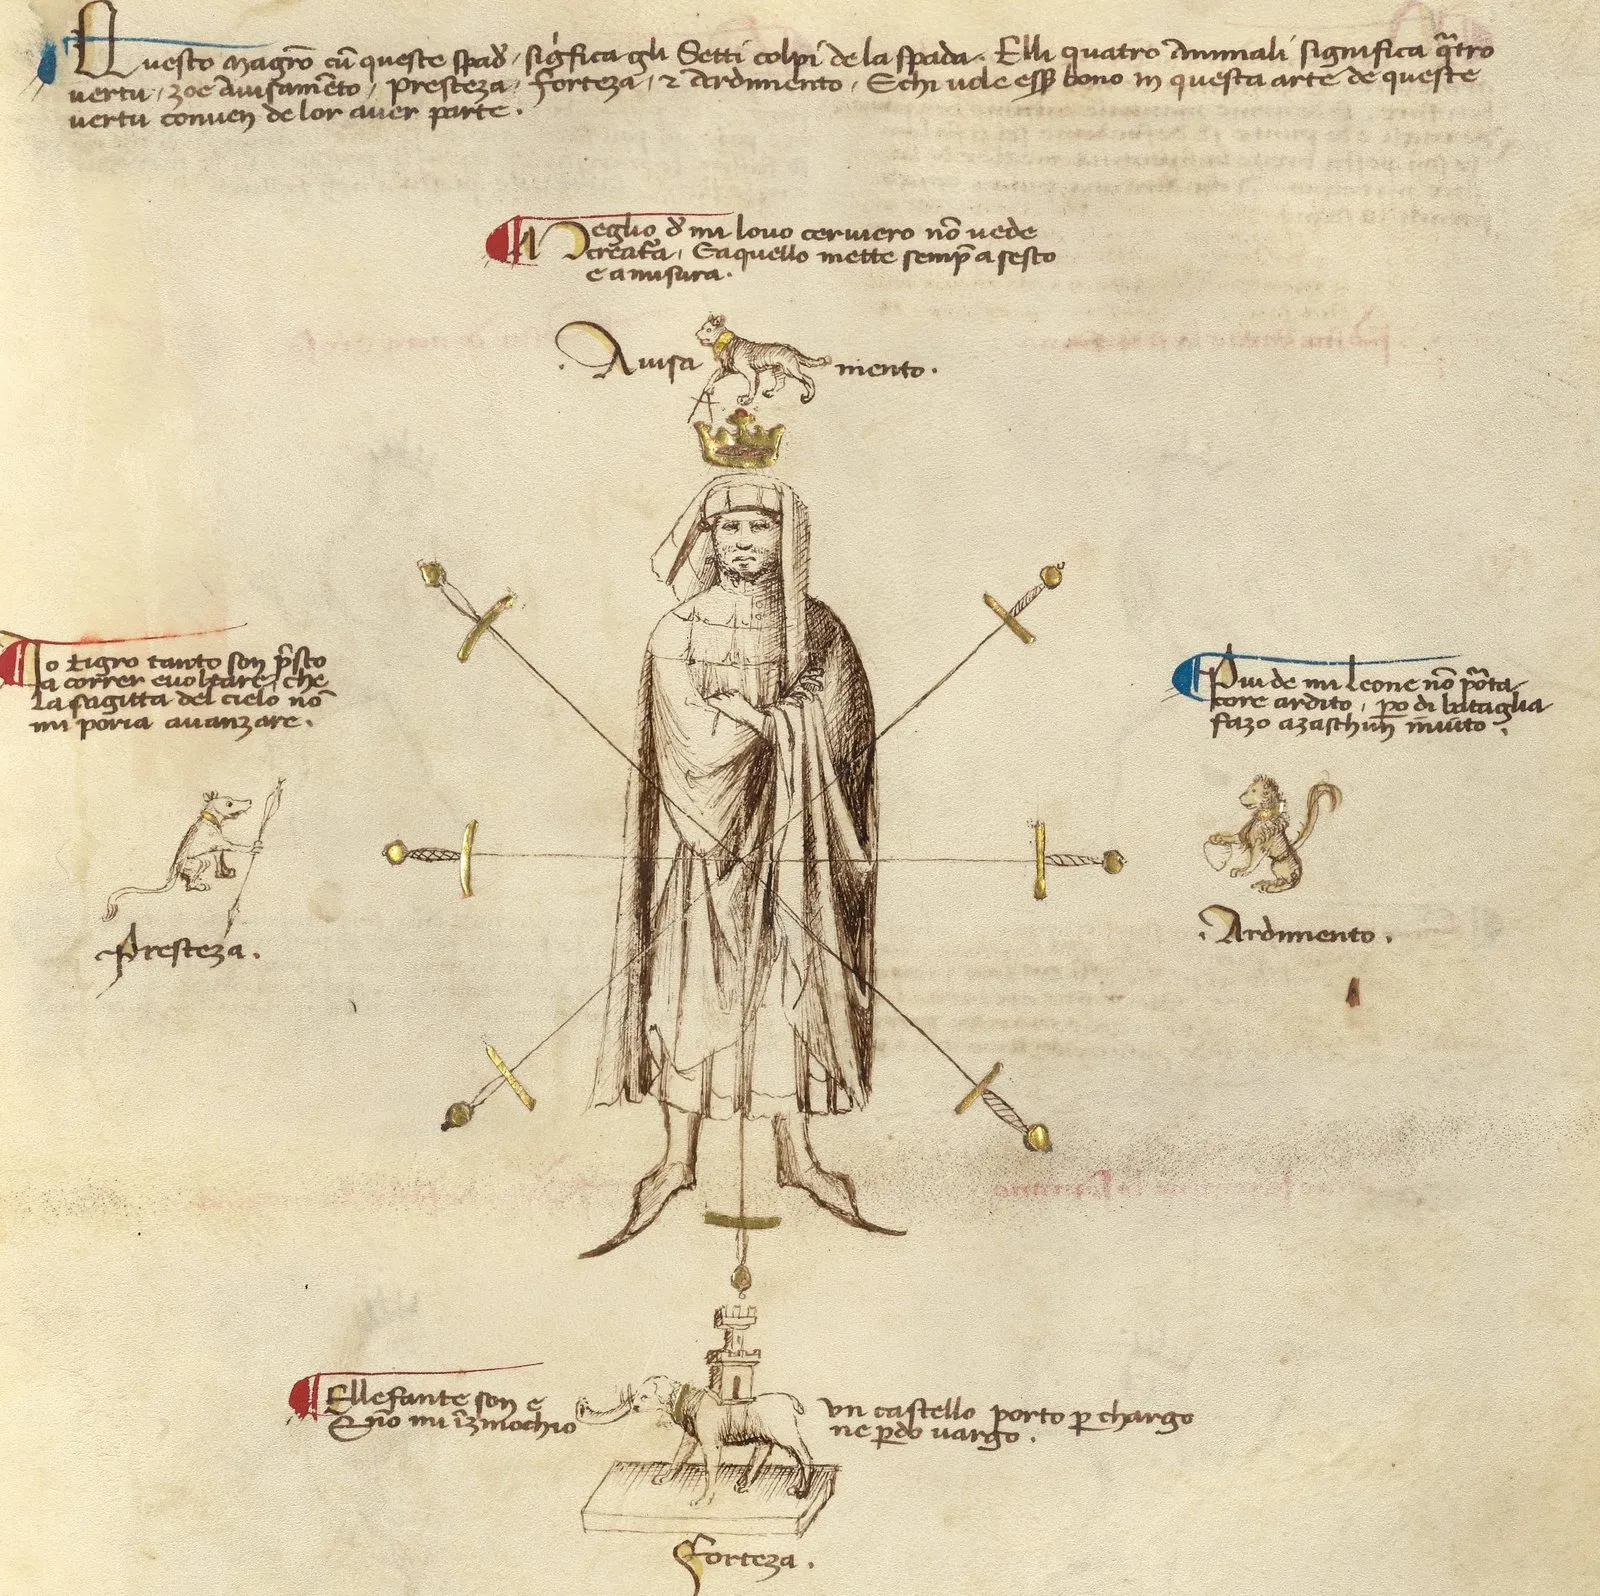 Questo magrō cū queste spad̄, sigfica gli Setti colpi de la spada. Elli quatro animali significa q̄tro
vertu, zoe avisamēto, presteza, forteza, ⁊ ardimento, E chi vole ess̄ bono in questa arte de queste
vertu conven de lor aver parte.
Meglio d̄ mi lovo cerviero nō vede
creat̄a, E aquello mette semp̄ a sesto
e a misura.
Avisa mento.
Lo tigro tanto son p̄sto
a correr e voltare, che
La sagitta del cielo nō
mi poria avanzare.
Piu de mi Leone nō porta
core ardito, po di bataglia
fazo a zaschun invito.
Presteza.
Ardimento.
Ellefante son e un castello porto p chargo
E nō mi īzinochio ne pdo vargo.
Forteza.